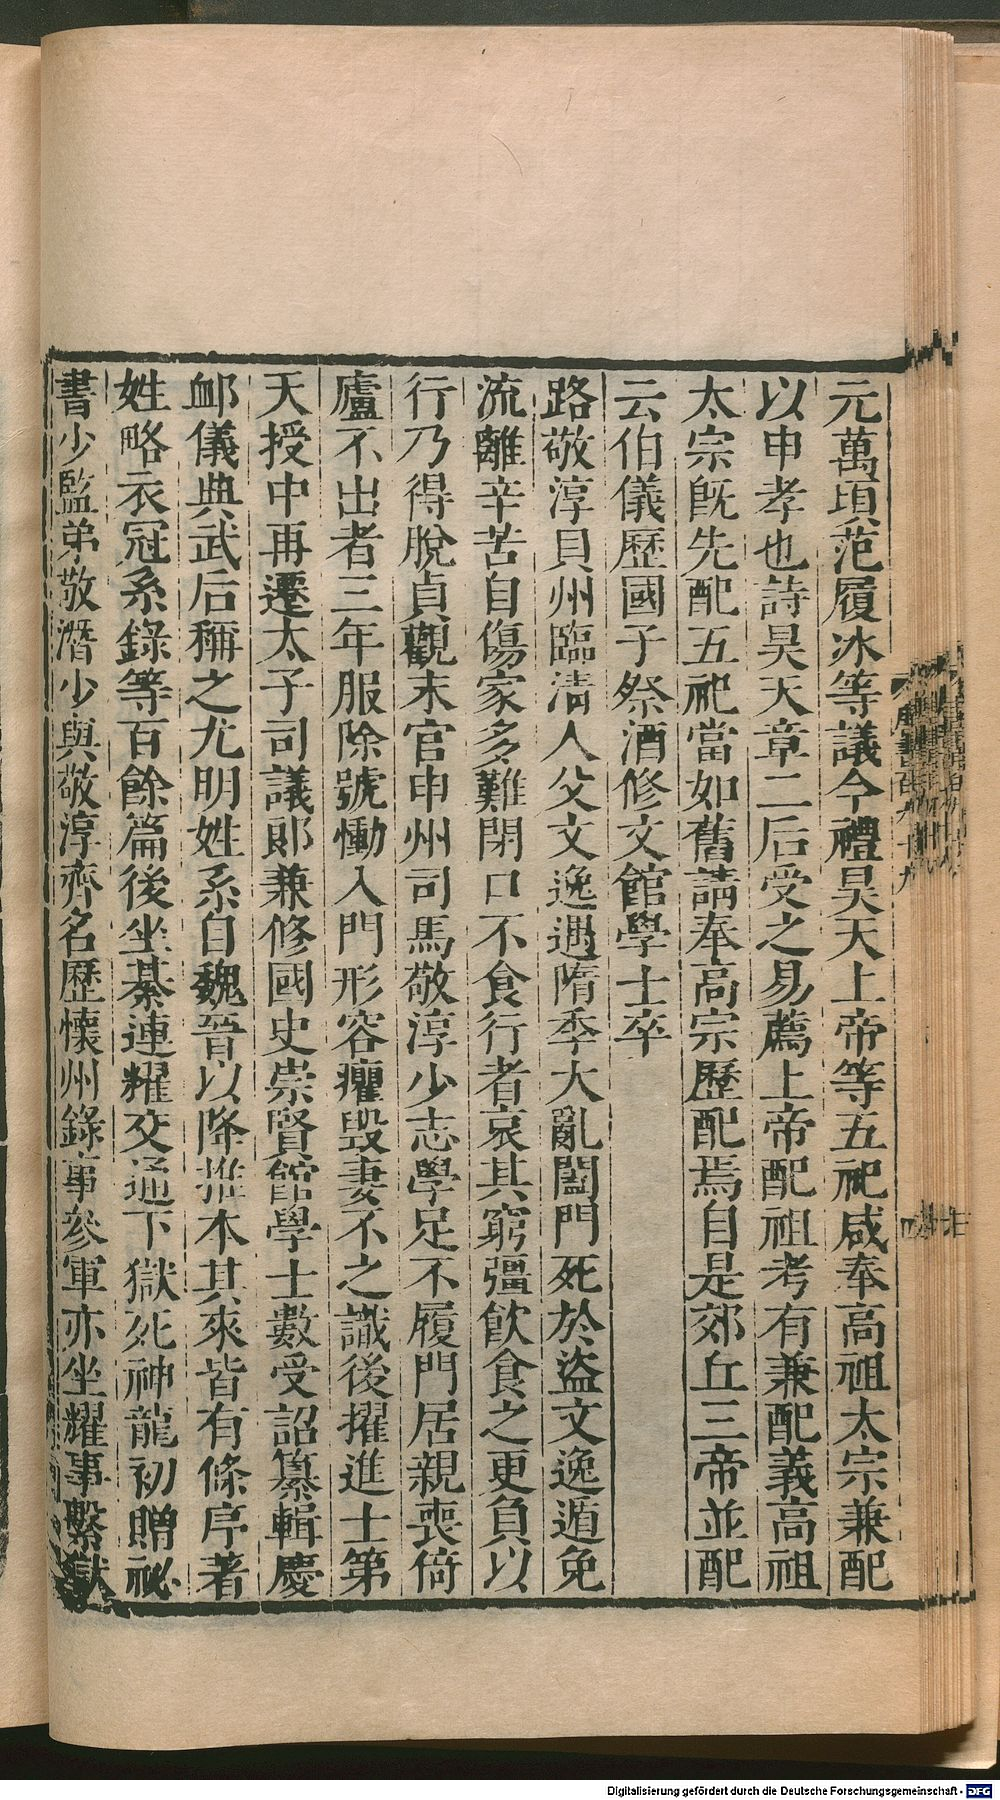 元萬頃范履冰等議今禮昊天上帝等五祀咸奉高祖太宗兼配
以申孝也詩昊天章二后受之易薦上帝配祖考有兼配義高祖
太宗旣先配五祀當如舊請奉高宗歷配焉自是郊丘三帝並配
云伯儀歷國子祭酒修文館學士卒
路敬淳貝州臨淸人父文逸遇隋季大亂闔門死於盜文逸遁免
流離辛苦自傷家多難閉口不食行者哀其窮彊飮食之更負以
行乃得脫貞觀末官申州司馬敬淳少志學足不履門居親喪倚
廬不出者三年服除號慟入門形容癯毀妻不之識後擢進士第
天授中再遷太子司議郞兼修國史崇賢館學士數受詔纂輯慶
卹儀典武后稱之尤明姓系自魏晉以降推本其來皆有條序著
姓略衣冠系錄等百餘篇後坐綦連耀交通下獄死神龍初贈祕
書少監弟敬潛少與敬淳齊名歷懷州錄事參軍亦坐耀事繫獄
Digitalisierung gefördert durch die Deutsche Forschungsgemeinschaft - DFG